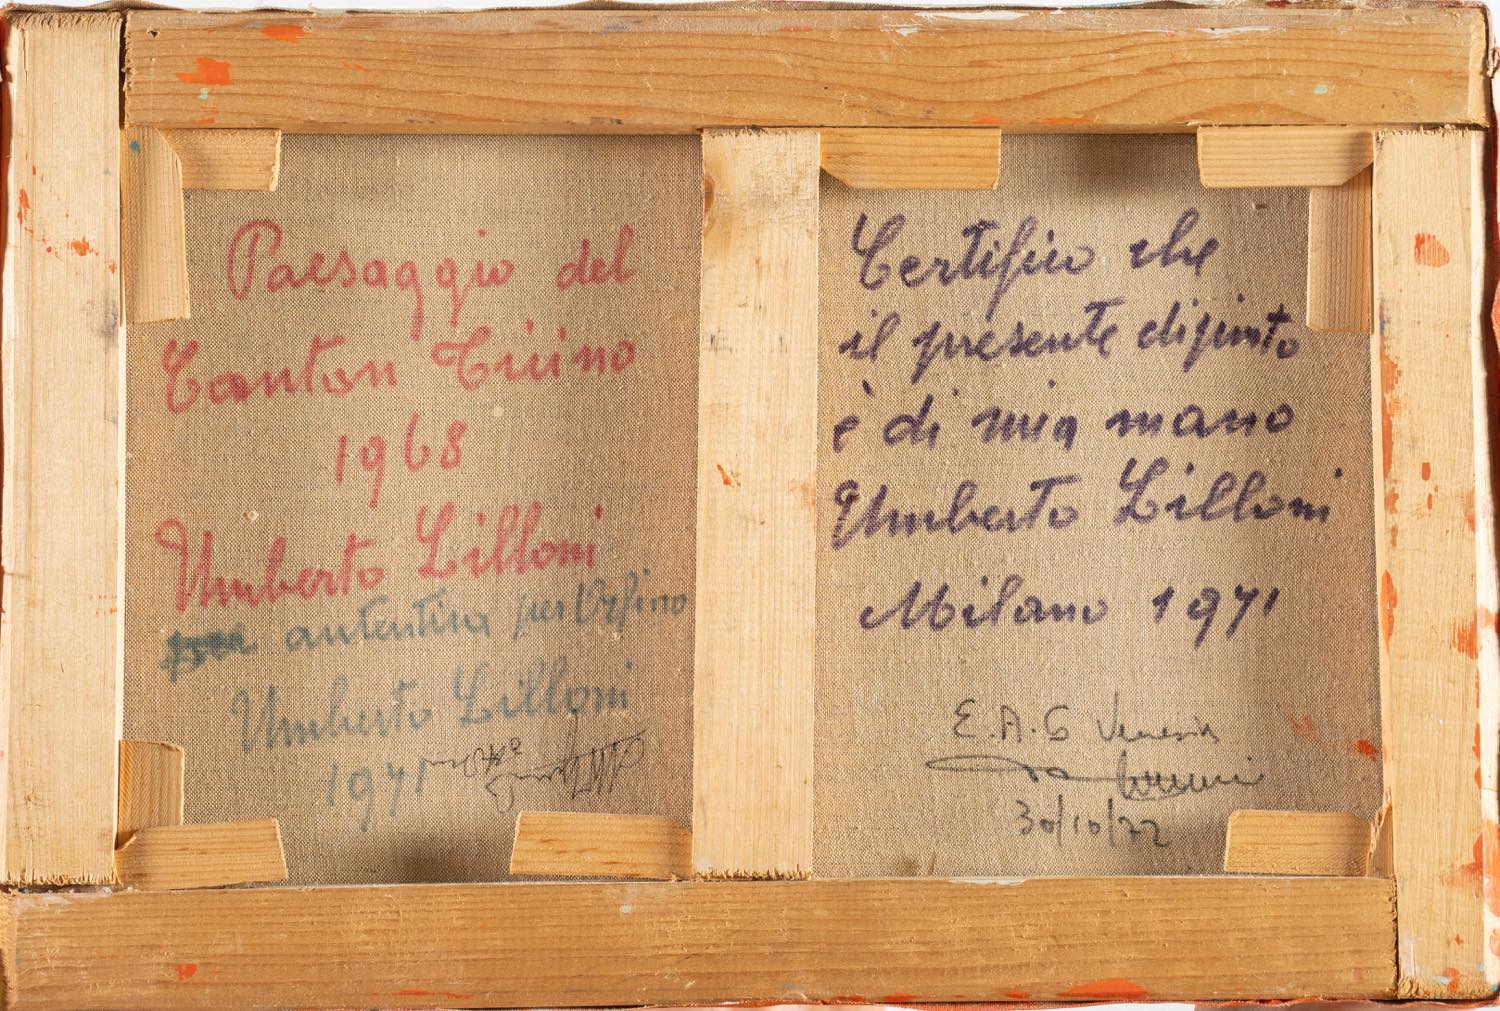 Paesaggio del
Canton Ticino
1968
Umberto Lilloni
autentica per Orfino
Umberto Lilloni
1971
Certifico che
il presente dipinto
è di mia mano
Umberto Lilloni
Milano 1971
E.A.G Venezia
30/10/72